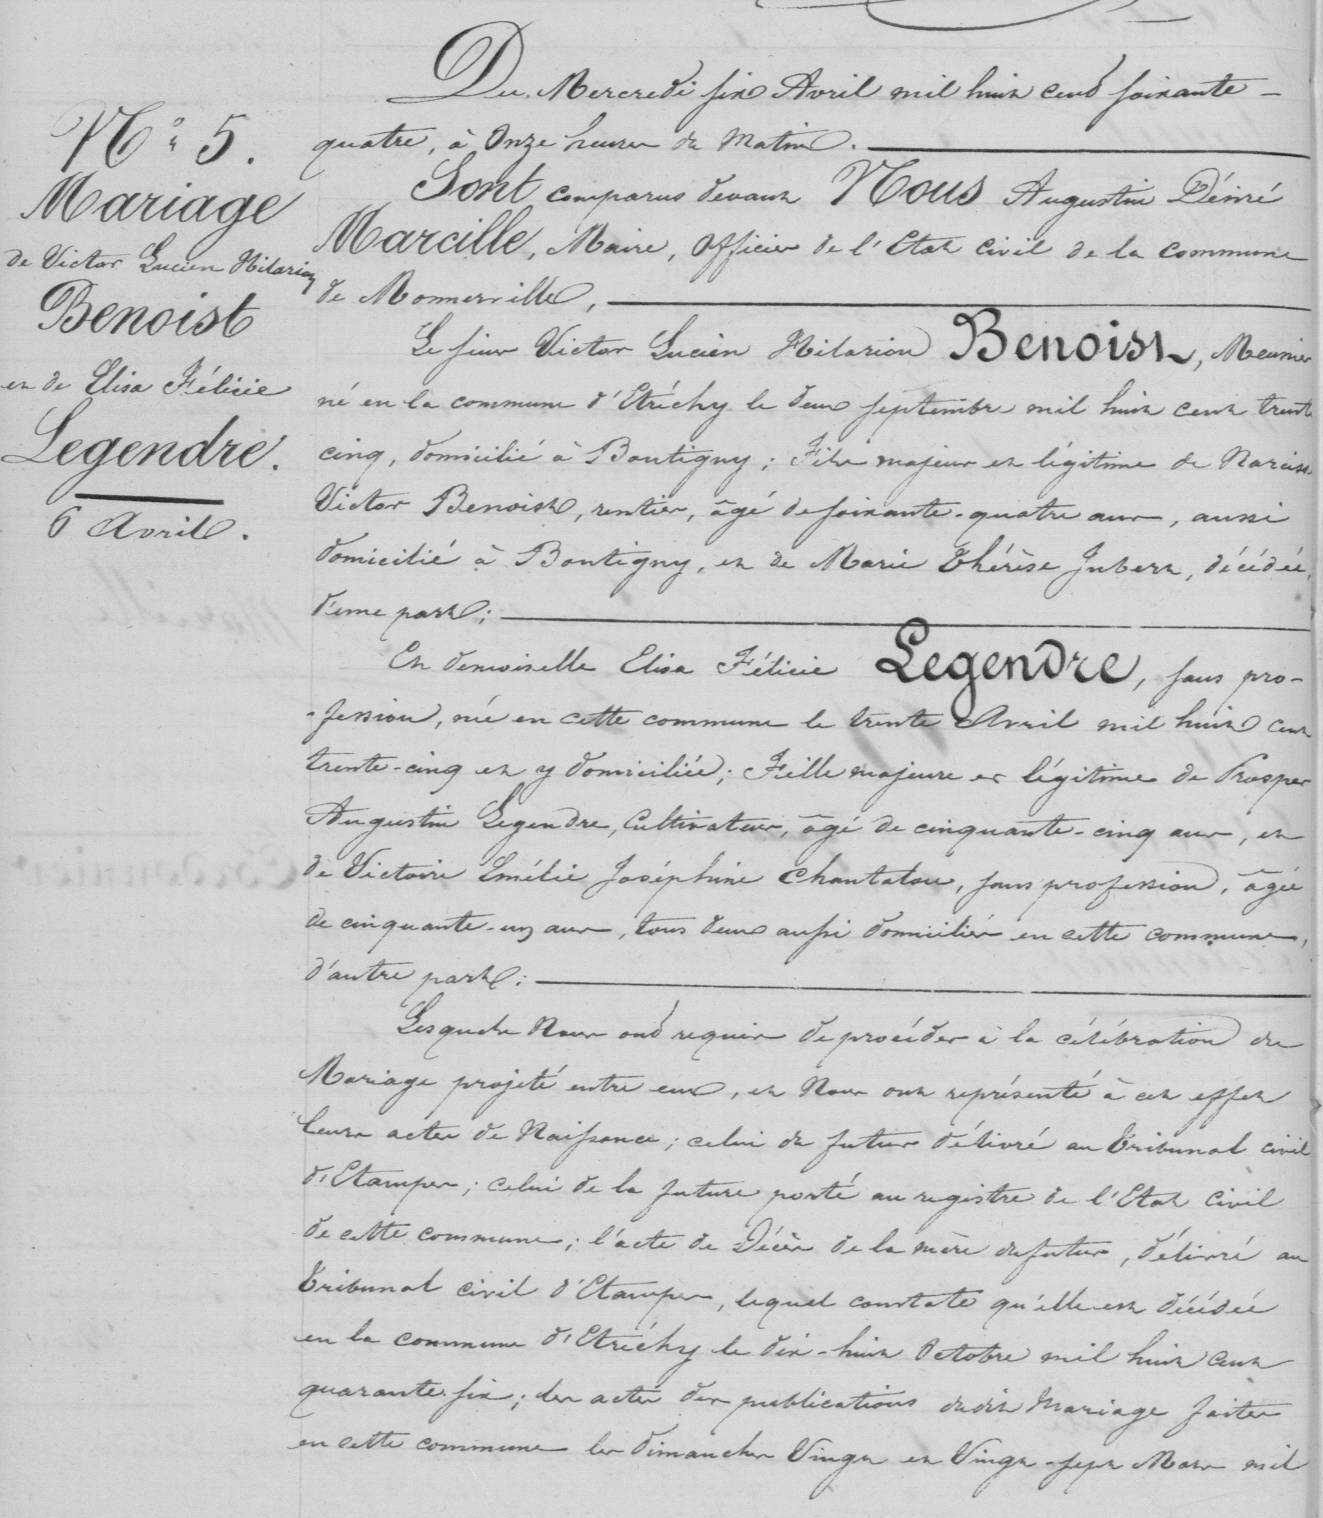 N° 5.
Mariage
de Victor Lucien Hilarion
Benoist
et de Elisa Félicie
Legendre.
6 Avril.
Du Mercredi six Avril mil huit cent soixante-
quatre, à Onze heures du Matin.
Sont comparus devant Nous Augustin Désiré
Marcille, Maire, Officier de l'Etat civil de la commune
de Monnerville,
Le sieur Victor Lucien Hilarion Benoist, Meunier
né en la commune d'Etréchy le deux septembre mil huit cent trente
cinq, domicilié à Boutigny; Fils majeur et légitime de Narcisse
Victor Benoist, rentier, âgé de soixante-quatre ans, aussi
domicilié à Boutigny, et de Marie Thérèse Jubert, décédée,
d'une part;
Et demoiselle Elisa Félicie Legendre, sans pro-
-fession, née en cette commune le trente Avril mil huit cent
trente-cinq et y domiciliée; Fille majeure et légitime de Prosper
Augustin Legendre, Cultivateur, âgé de cinquante-cinq ans, et
de Victoire Emélie Joséphine Chantalou, sans profession, âgée
de cinquante-un ans, tous deux aussi domiciliés en cette commune,
d'autre part;
Lesquels Nous ont requis de procéder à la célébration du
Mariage projeté entre eux, et Nous ont représenté à cet effet
leurs actes de Naissance; celui du futur délivré au Tribunal civil
d'Etampes; celui de la future porté au registre de l'Etat civil
de cette commune; l'acte de Décès de la mère du futur, délivré au
Tribunal civil d'Etampes, lequel constate qu'elle est décédée
en la commune d'Etréchy le dix-huit Octobre mil huit cent
quarante six; les actes des publications dudit Mariage faites
en cette commune les dimanches Vingt et Vingt-sept Mars mil